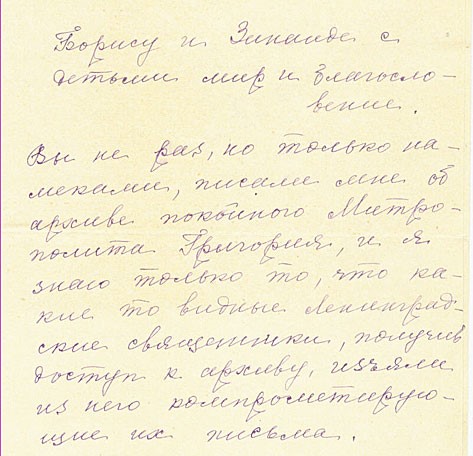 Борису и Зинаиде с
детьми мир и благосло-
вение.
Вы не раз, но только на-
меками, писали мне об
архиве покойного Митро-
полита Григория, и я
знаю только то, что ка-
кие то видные Ленинград-
ские священники, получив
доступ к архиву, изъяли
из него компрометирую-
щие их письма.